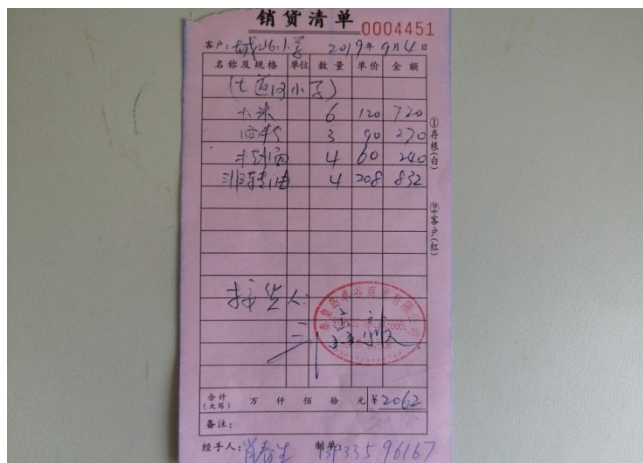 销货清单 0004451
客户: 城北小学 2019年9月4日
名称及规格 单位 数量 单价 金额
(七道河小学)
大米 6 120 720
面粉 3 90 270
挂面 4 60 240
非转油 4 208 832
①存根(白)
②客户(红)
接货人:
合计(大写) 万 仟 佰 拾 元 ¥2062
备注:
经手人: 肖春生 制单: 1333596167